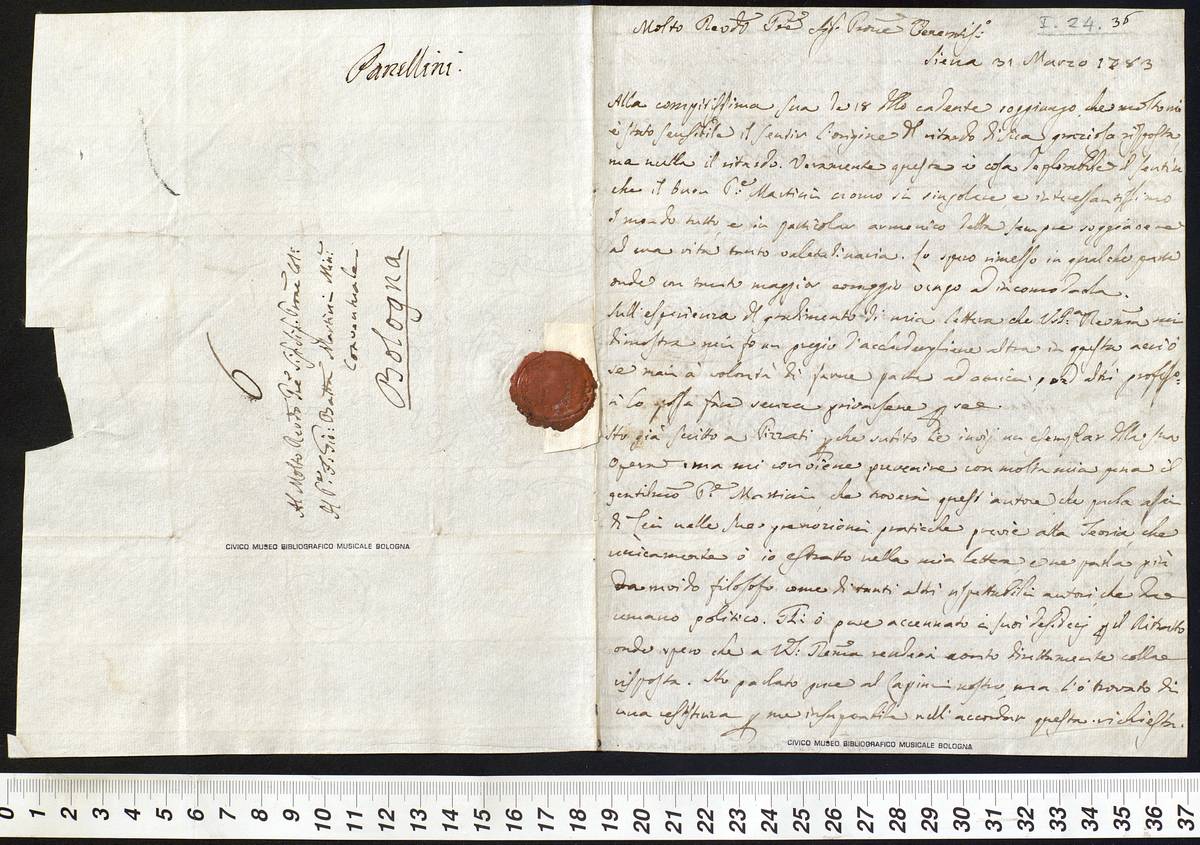 Panellini.
6
Al Molto Revdo Pre Sigr. Sigr. Prone Colmo
Il Pre F. Gio: Batta Martini Min:
Conventuale
Bologna
CIVICO MUSEO BIBLIOGRAFICO MUSICALE BOLOGNA
I. 24. 36
Molto Revdo Pre Sigr. Prone Veneratiss:o
Siena 31 Marzo 1783
Alla compitissima sua de 18 dello cadente soggiungo che molto mi
è stato sensibile il sentir l'origine del ritardo di sua graziosa risposta
ma nulla il ritardo. Veramente questa è cosa deplorabile il sentire
che il buon Pre Martini uomo sì singolare e interessantissimo
al mondo tutto e in particolar armonico debba sempre soggiacere
ad una vita tanto valetudinaria. Lo spero rimesso in qualche parte
onde con tanto maggior coraggio vengo ad incomodarla.
Sull'esperienza del gradimento di mia lettera che V.S. Revma mi
dimostra mi fo un pregio d'accludergliene altra in questa acciò
se mai à volontà di farne parte ad amici, od altri professo-
ri lo possa fare senza privarsene per se.
Ho già scritto a Pizzati perche subito le invij un esemplar della sua
Opera. ma mi conviene prevenire con molta mia pena il
gentilmo Pre Martini che troverà quest'autore che parla assai
di Lei nelle sue prenozioni pratiche previe alla Teoria, che
unicamente ò io estratto nella mia lettera e ne parla più
da ruvido filosofo come di tanti altri rispettabili autori, che da
umano politico. Gli ò pure accennato i suoi desiderj per il Ritratto
onde spero che a V.S. Revma renderà conto direttamente colla
risposta. Ho parlato pure al Lapini nostro, ma l'ò trovato di
una restitura per me insuperabile nell'accordar questa richiesta.
CIVICO MUSEO BIBLIOGRAFICO MUSICALE BOLOGNA
0 1 2 3 4 5 6 7 8 9 10 11 12 13 14 15 16 17 18 19 20 21 22 23 24 25 26 27 28 29 30 31 32 33 34 35 36 37